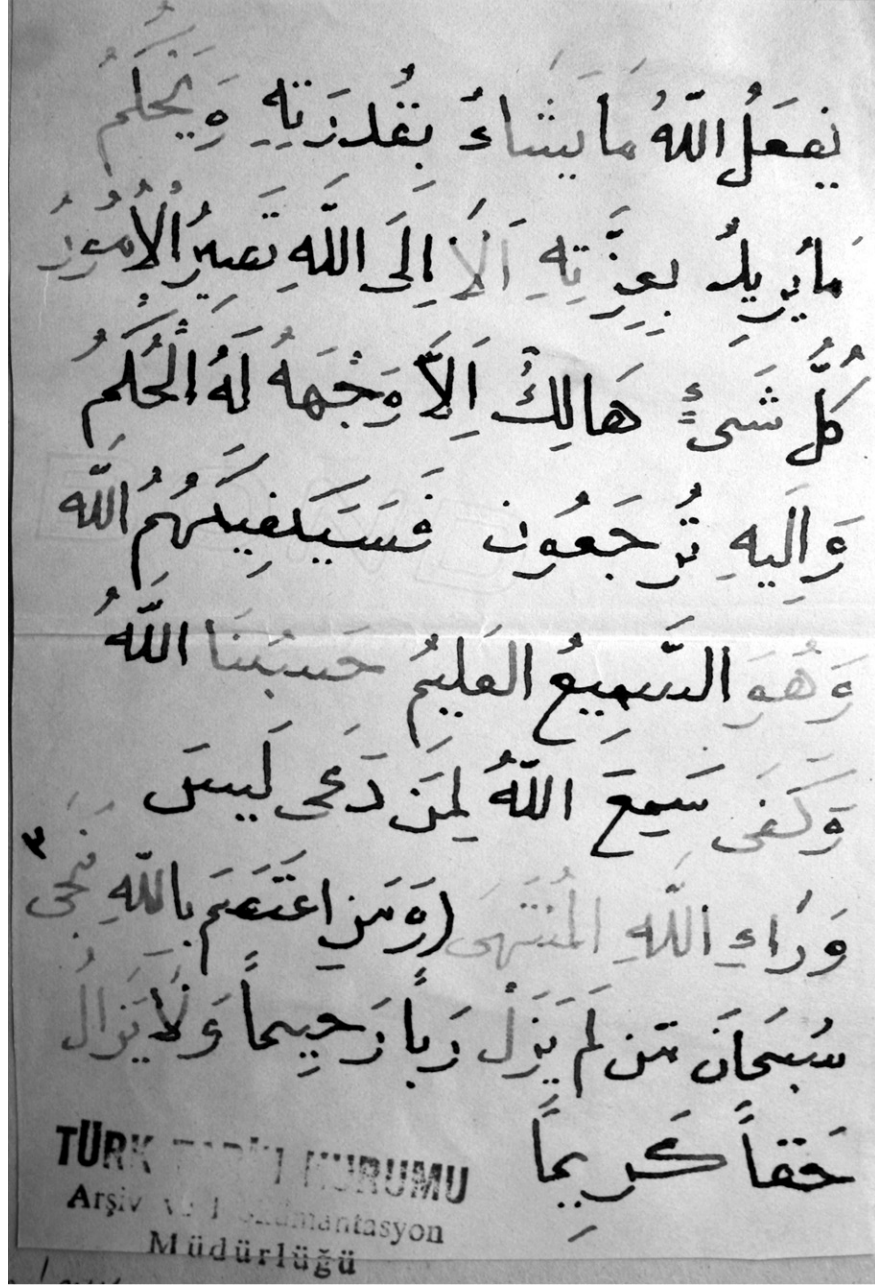 يَفعَلُ اللّٰهُ مَا يَشَاءُ بِقُدرَتِهِ وَيَحْكُمُ
مَا يُرِيدُ بِعِزَّتِهِ اَلَا إِلَى اللّٰهِ تَصِيرُ الْاُمُورُ
كُلُّ شَىْءٍ هَالِكٌ اِلاَّ وَجْهَهُ لَهُ الْحُكمُ
وَاِلَيهِ تُرجَعُون فَسَيَكفِيكَهُمُ اللّٰه
وَهُوَ السَّمِيعُ العَلِيمُ حَسبُنَا اللّٰهُ
وَكَفَى سَمِعَ اللّٰهُ لِمَن دَعَى لَيسَ
وَرَاءِ اللّٰهِ المُنتَهَى (وَمَنِ اعتَصَمَ بِاللّٰهِ نَجَى ٣
سُبحَانَ مَن لَم يَزَلْ رَباً رَحِيماً وَلَا يَزَالُ
حَقاً كَرِيماً
TÜRK TARİH KURUMU
Arşiv ve Dokümantasyon
Müdürlüğü